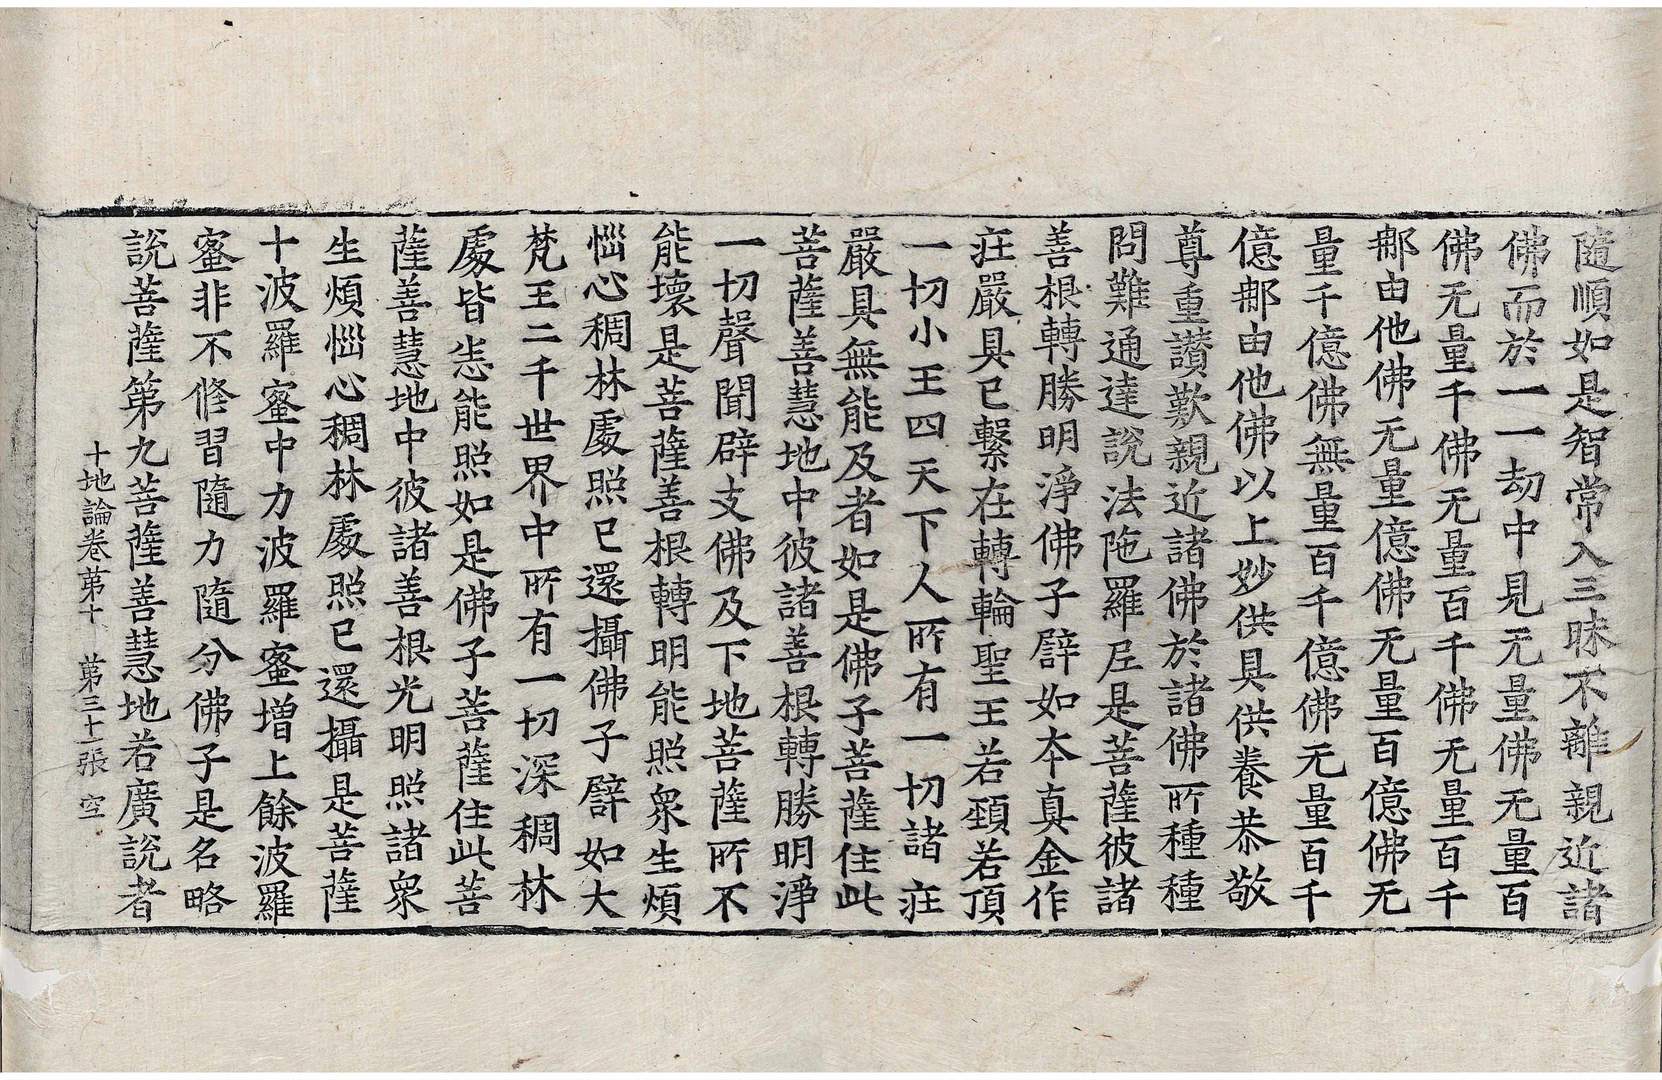 隨順如是智常入三昧不離親近諸
佛而於一一劫中見无量佛无量百
佛无量千佛无量百千佛无量百千
那由他佛无量億佛无量百億佛无
量千億佛無量百千億佛无量百千
億那由他佛以上妙供具供養恭敬
尊重讃歎親近諸佛於諸佛所種種
問難通達說法陁羅尼是菩薩彼諸
善根轉勝明淨佛子譬如本真金作
莊嚴具已繫在轉輪聖王若頸若頂
一切小王四天下人所有一切諸莊
嚴具無能及者如是佛子菩薩住此
菩薩善慧地中彼諸善根轉勝明淨
一切聲聞辟支佛及下地菩薩所不
能壞是菩薩善根轉明能照衆生煩
惱心稠林處照已還攝佛子譬如大
梵王二千世界中所有一切深稠林
處皆悉能照如是佛子菩薩住此菩
薩善慧地中彼諸善根光明照諸衆
生煩惱心稠林處照已還攝是菩薩
十波羅蜜中力波羅蜜增上餘波羅
蜜非不修習隨力隨分佛子是名略
說菩薩第九菩薩善慧地若廣說者
十地論卷第十 第三十一張 空